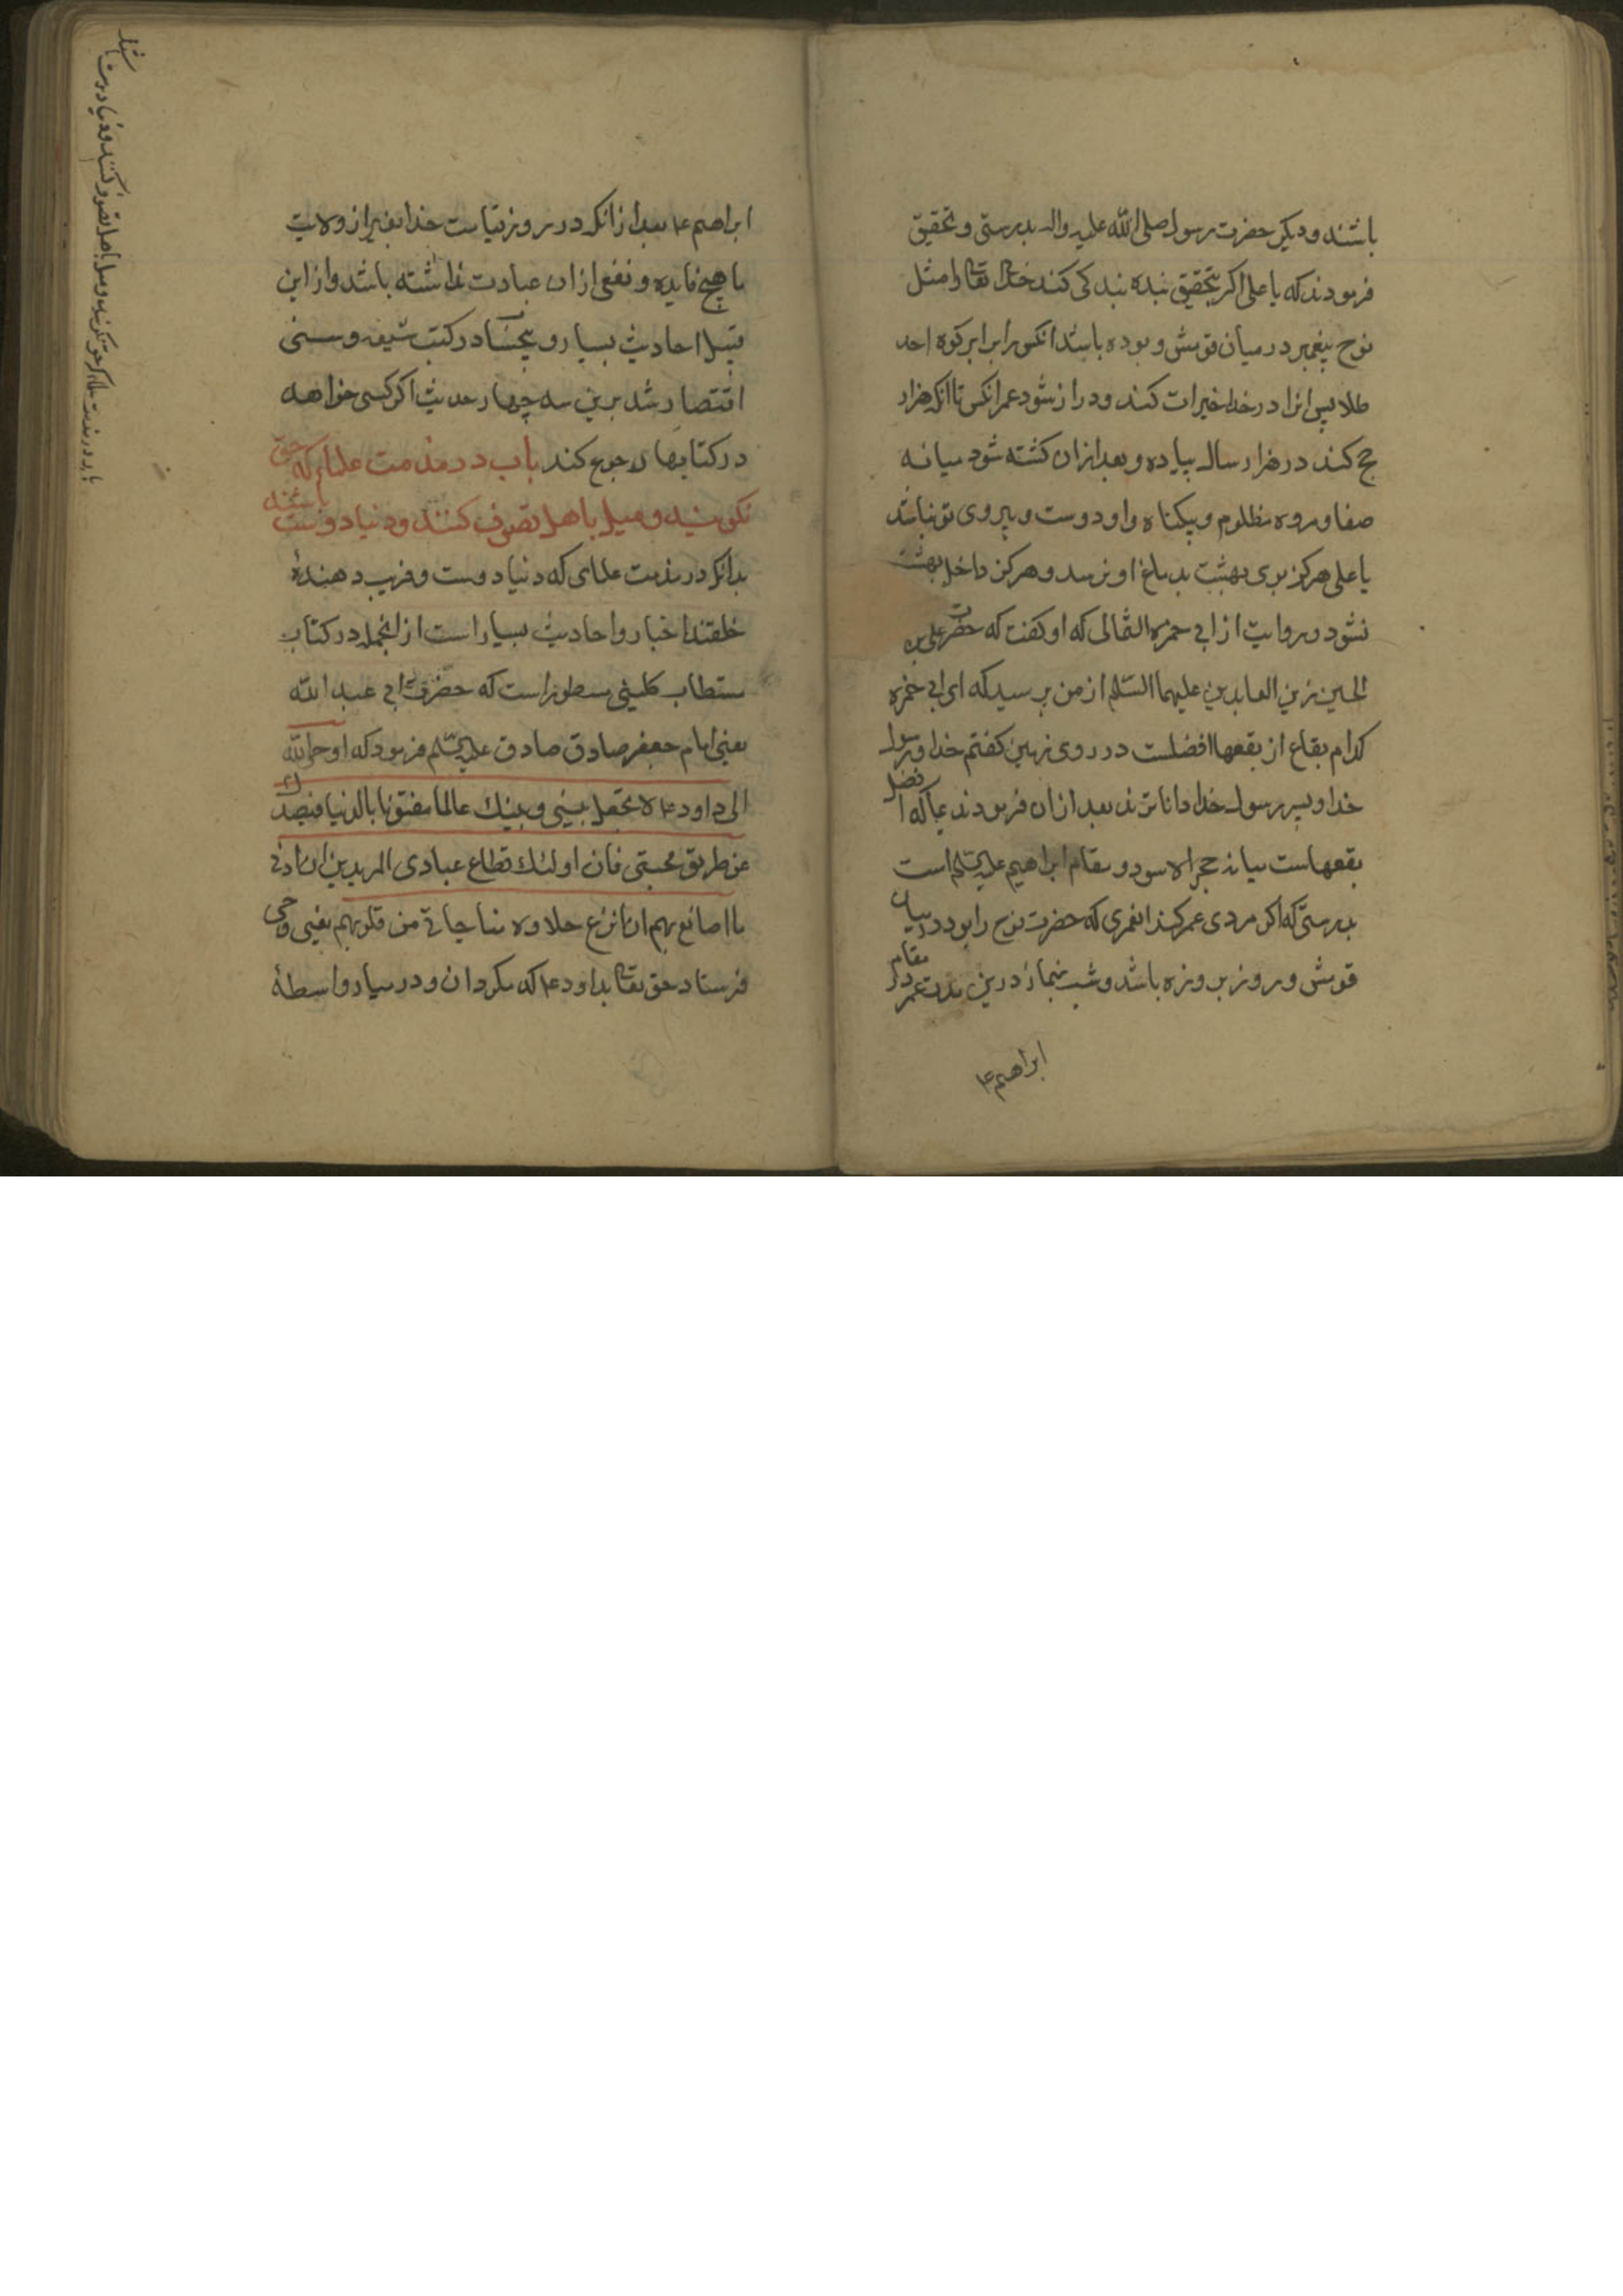 باشند و دیکر حضرت رسول صلی الله علیه واله بدرستی و تحقیق
فرمودند که یا علی اکر بتحقیق بنده بندکی کند خدای تعالی را مثل
نوح پیغمبر در میان قومش و بوده باشد انکس را برابر کوه احد
طلا پس انرا در راه خدا خیرات کند و دراز شود عمر انکس تا انکه هزار
حج کند در هزار سال پیاده و بعد از ان کشته شود میانه
صفا و مروه مظلوم و بیکناه و او دوست و پیروی تو نباشد
یا علی هرکز بوی بهشت بدماغ او نرسد و هرکز داخل بهشت
نشود و روایت از ابی حمزه الثمالی که او کفت که حضرت علی بن
الحسین زین العابدین علیهما السلام از من پرسید که ای ابی حمزه
کدام بقاع از بقعها افضلست در روی زمین کفتم خدا و رسول
خدا و پسر رسول خدا داناترند بعد از ان فرمودند که افضل
بقعهاست میانه حجر الاسود و مقام ابراهیم علیه السلام است
بدرستی که اکر مردی عمر کند انعمری که حضرت نوح را بود در میان
قومش و روز بروزه باشد و شب بنماز درین مدت عمر در مقام
ابراهیم ع
ابراهیم ع بعد از انکه در روز قیامت خدا بغیر از ولایت
ما هیچ فایده و نفعی از ان عبادت نداشته باشد و از این
قبیل احادیث بسیار و بیحسا در کتب شیعه و سنی
اقتصار شد برین سه چهار حدیث اکر کسی خواهد
در کتابها رجوع کند باب در مذمت علمای که حق
نکویند و میل باهل تصوف کنند و دنیا دوست باشند
بدانکه در مذمت علمای که دنیا دوست و فریب دهندهٔ
خلقند اخبار و احادیث بسیار است از انجمله در کتاب
مستطاب کلینی مسطور است که حضرت ابی عبد الله
یعنی امام جعفر صادق صادق علیه السلم فرمود که اوحی الله
الی داود ع لا تجعل بینی و بینك عالما مفتونا بالدنیا فیصدك
عن طریق محبتی فان اولئك قطاع عبادی المریدین ان ادنی
ما انا صانع بهم ان انزع حلاوة مناجاتی من قلوبهم یعنی وحی
فرستاد حق تعالی بداود ع که مکردان و در میار واسطهٔ
باب در مذمت علمای که حق نکویند و میل باهل تصوف کنند و دنیا دوست باشند